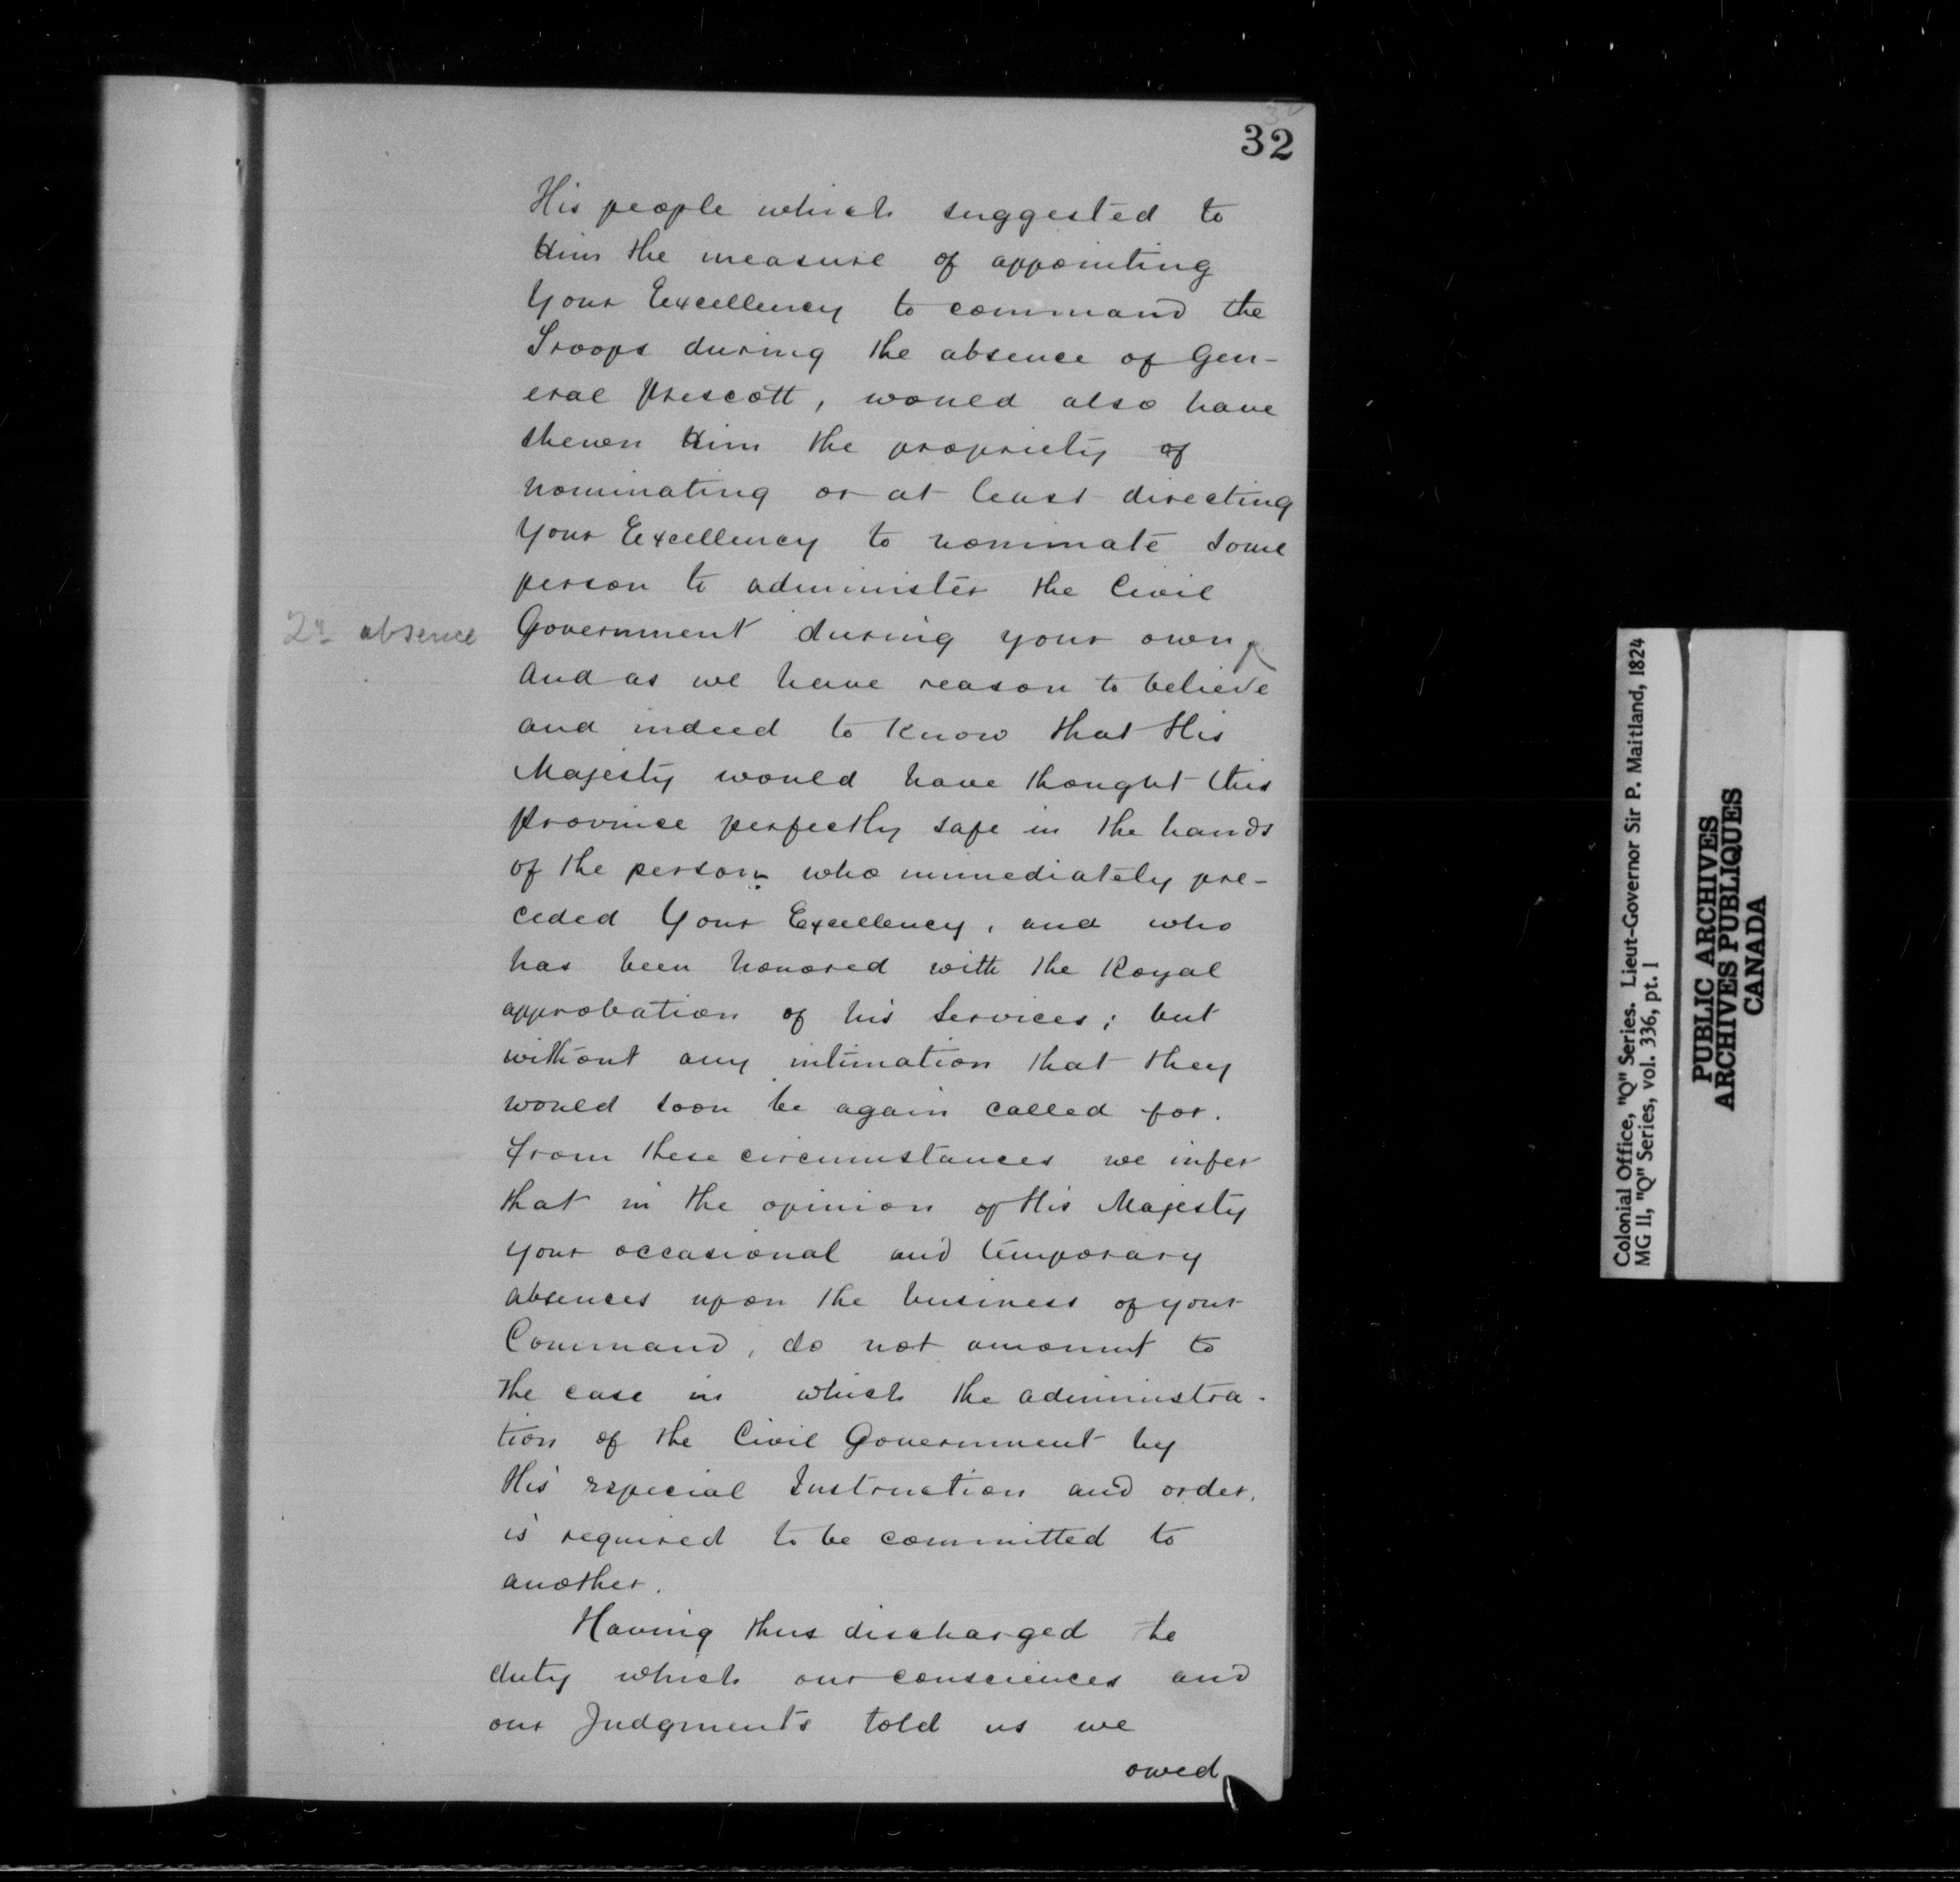 32
His people which suggested to
Him the measure of appointing
Your Excellency to command the
Troops during the absence of Gen-
eral Prescott, would also have
shewn Him the propriety of
nominating or at least directing
Your Excellency to nominate some
person to administer the Civil
absence
Government during your own ^
And as we have reason to believe
and indeed to know that His
Majesty would have thought this
Province perfectly safe in the hands
of the person who immediately pre-
ceded Your Excellency, and who
has been honored with the Royal
approbation of his services; but
without any intimation that they
would soon be again called for.
From these circumstances we infer
that in the opinion of His Majesty
your occasional and temporary
absences upon the business of your
Command, do not amount to
the case in which the administra-
tion of the Civil Government by
His especial Instruction and order.
is required to be committed to
another.
Having thus discharged the
duty which our consciences and
our Judgments told us we
owed
Colonial Office, "Q" Series. Lieut-Governor Sir P. Maitland, 1824
MG 11, "Q" Series, vol. 336, pt. 1
PUBLIC ARCHIVES
ARCHIVES PUBLIQUES
CANADA